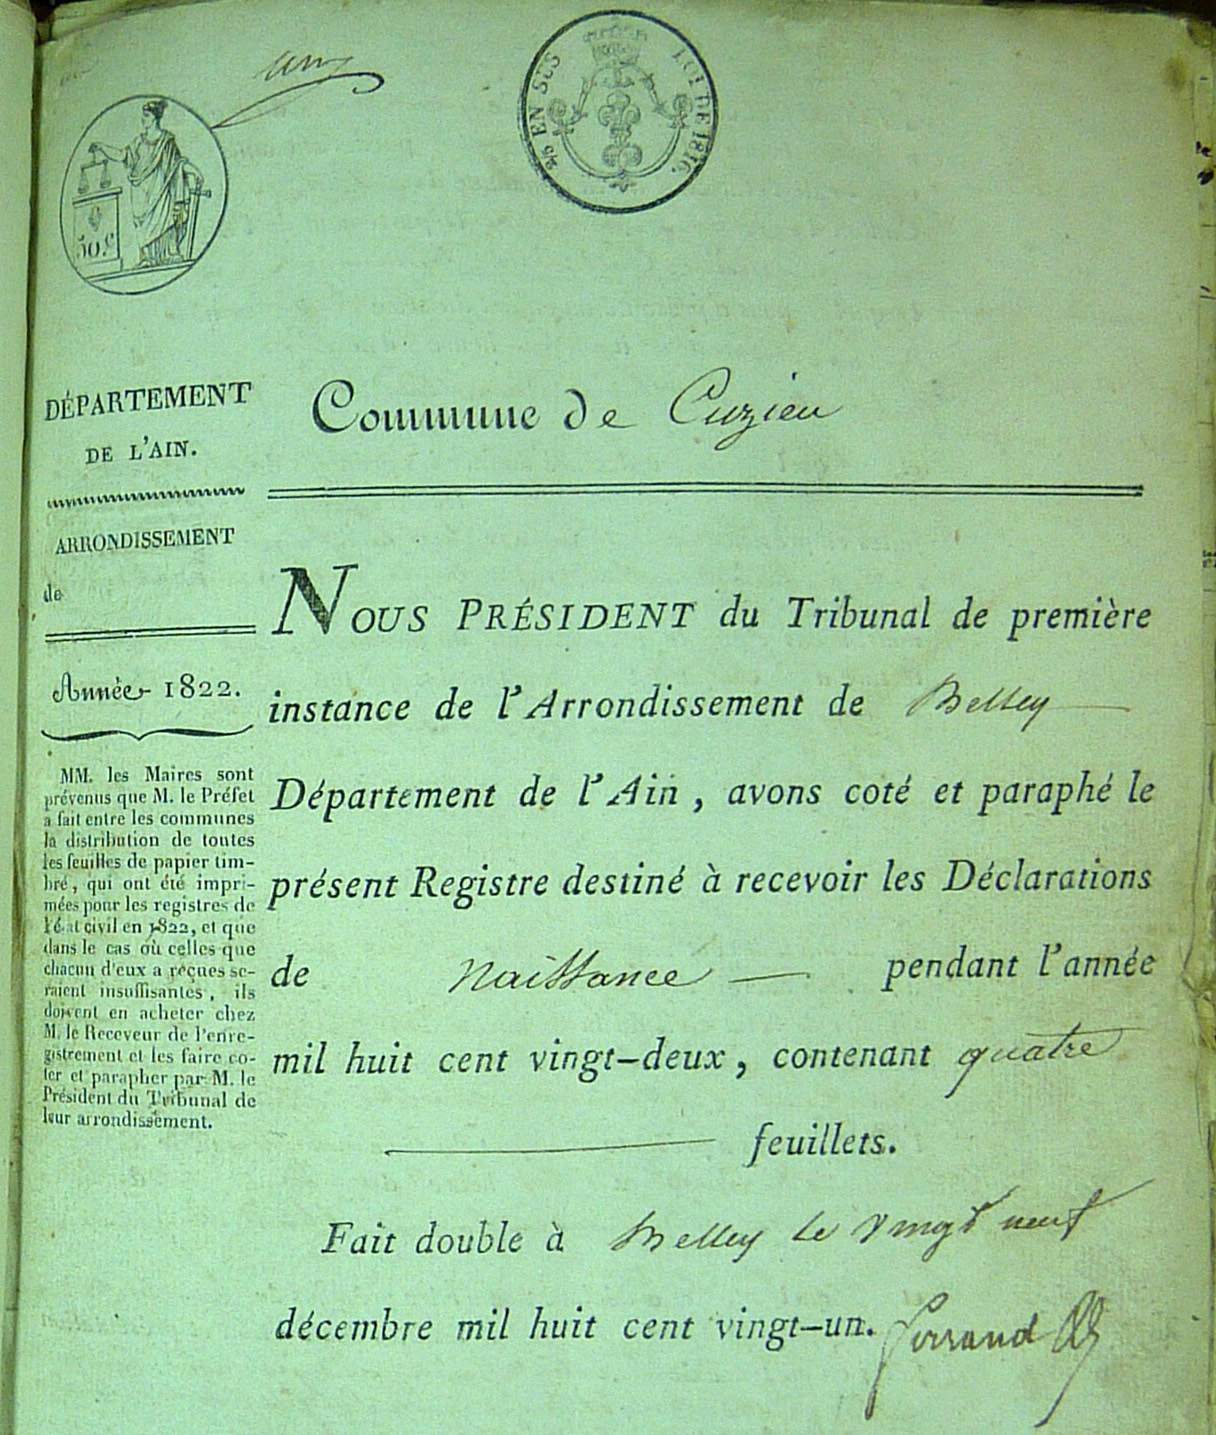 un
2/5 EN SUS
LOI DE 1816.
50 c.
DÉPARTEMENT
DE L'AIN.
Commune de Cuzieu
ARRONDISSEMENT
de
Année 1822.
MM. les Maires sont
prévenus que M. le Préfet
a fait entre les communes
la distribution de toutes
les feuilles de papier tim-
bré, qui ont été impri-
mées pour les registres de
l'état civil en 1822, et que
dans le cas où celles que
chacun d'eux a reçues se-
raient insuffisantes, ils
doivent en acheter chez
M. le Receveur de l'enre-
gistrement et les faire co-
ter et parapher par M. le
Président du Tribunal de
leur arrondissement.
NOUS PRÉSIDENT du Tribunal de première
instance de l'Arrondissement de Belley
Département de l'Ain, avons coté et paraphé le
présent Registre destiné à recevoir les Déclarations
de Naissance — pendant l'année
mil huit cent vingt-deux, contenant quatre
feuillets.
Fait double à Belley le vingt neuf
décembre mil huit cent vingt-un.